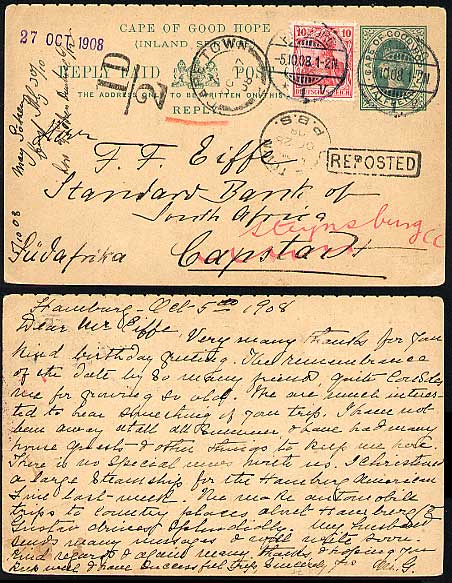 27 OCT 1908
CAPE OF GOOD HOPE
(INLAND
REPLY PAID
POST
THE ADDRESS ONLY TO BE WRITTEN ON THIS
REPLY
1D
2
TOWN
5.10.08.1-2N
10 10
DEUTSCHES REICH
CAPE OF GOOD HOPE
HALFPENNY
P.B.S.
REPOSTED
Herr
F. F. Eiffe
Standard Bank of
South Africa
Capstadt
Steynsburg CC
Südafrika
5/10 08
Hamburg - Oct 5th 1908
Dear Mr Eiffe, Very many thanks for your
kind birthday greeting. The remembrance
of the date by so many friends, quite consoles
me for growing so old. We are much interes-
ted to hear something of your trip. I have not
been away at all this summer & have had many
house guests & other things to keep me here
There is no special news with us. I christened
a large steamship for the Hamburg American
Line last week. We make automobile
trips to country places about Hamburg &
Gustav drives splendidly. My husband
sends many messages & will write soon.
Kind regards & again many thanks & hoping you
keep well & have successful trip Sincerely yrs M.G.